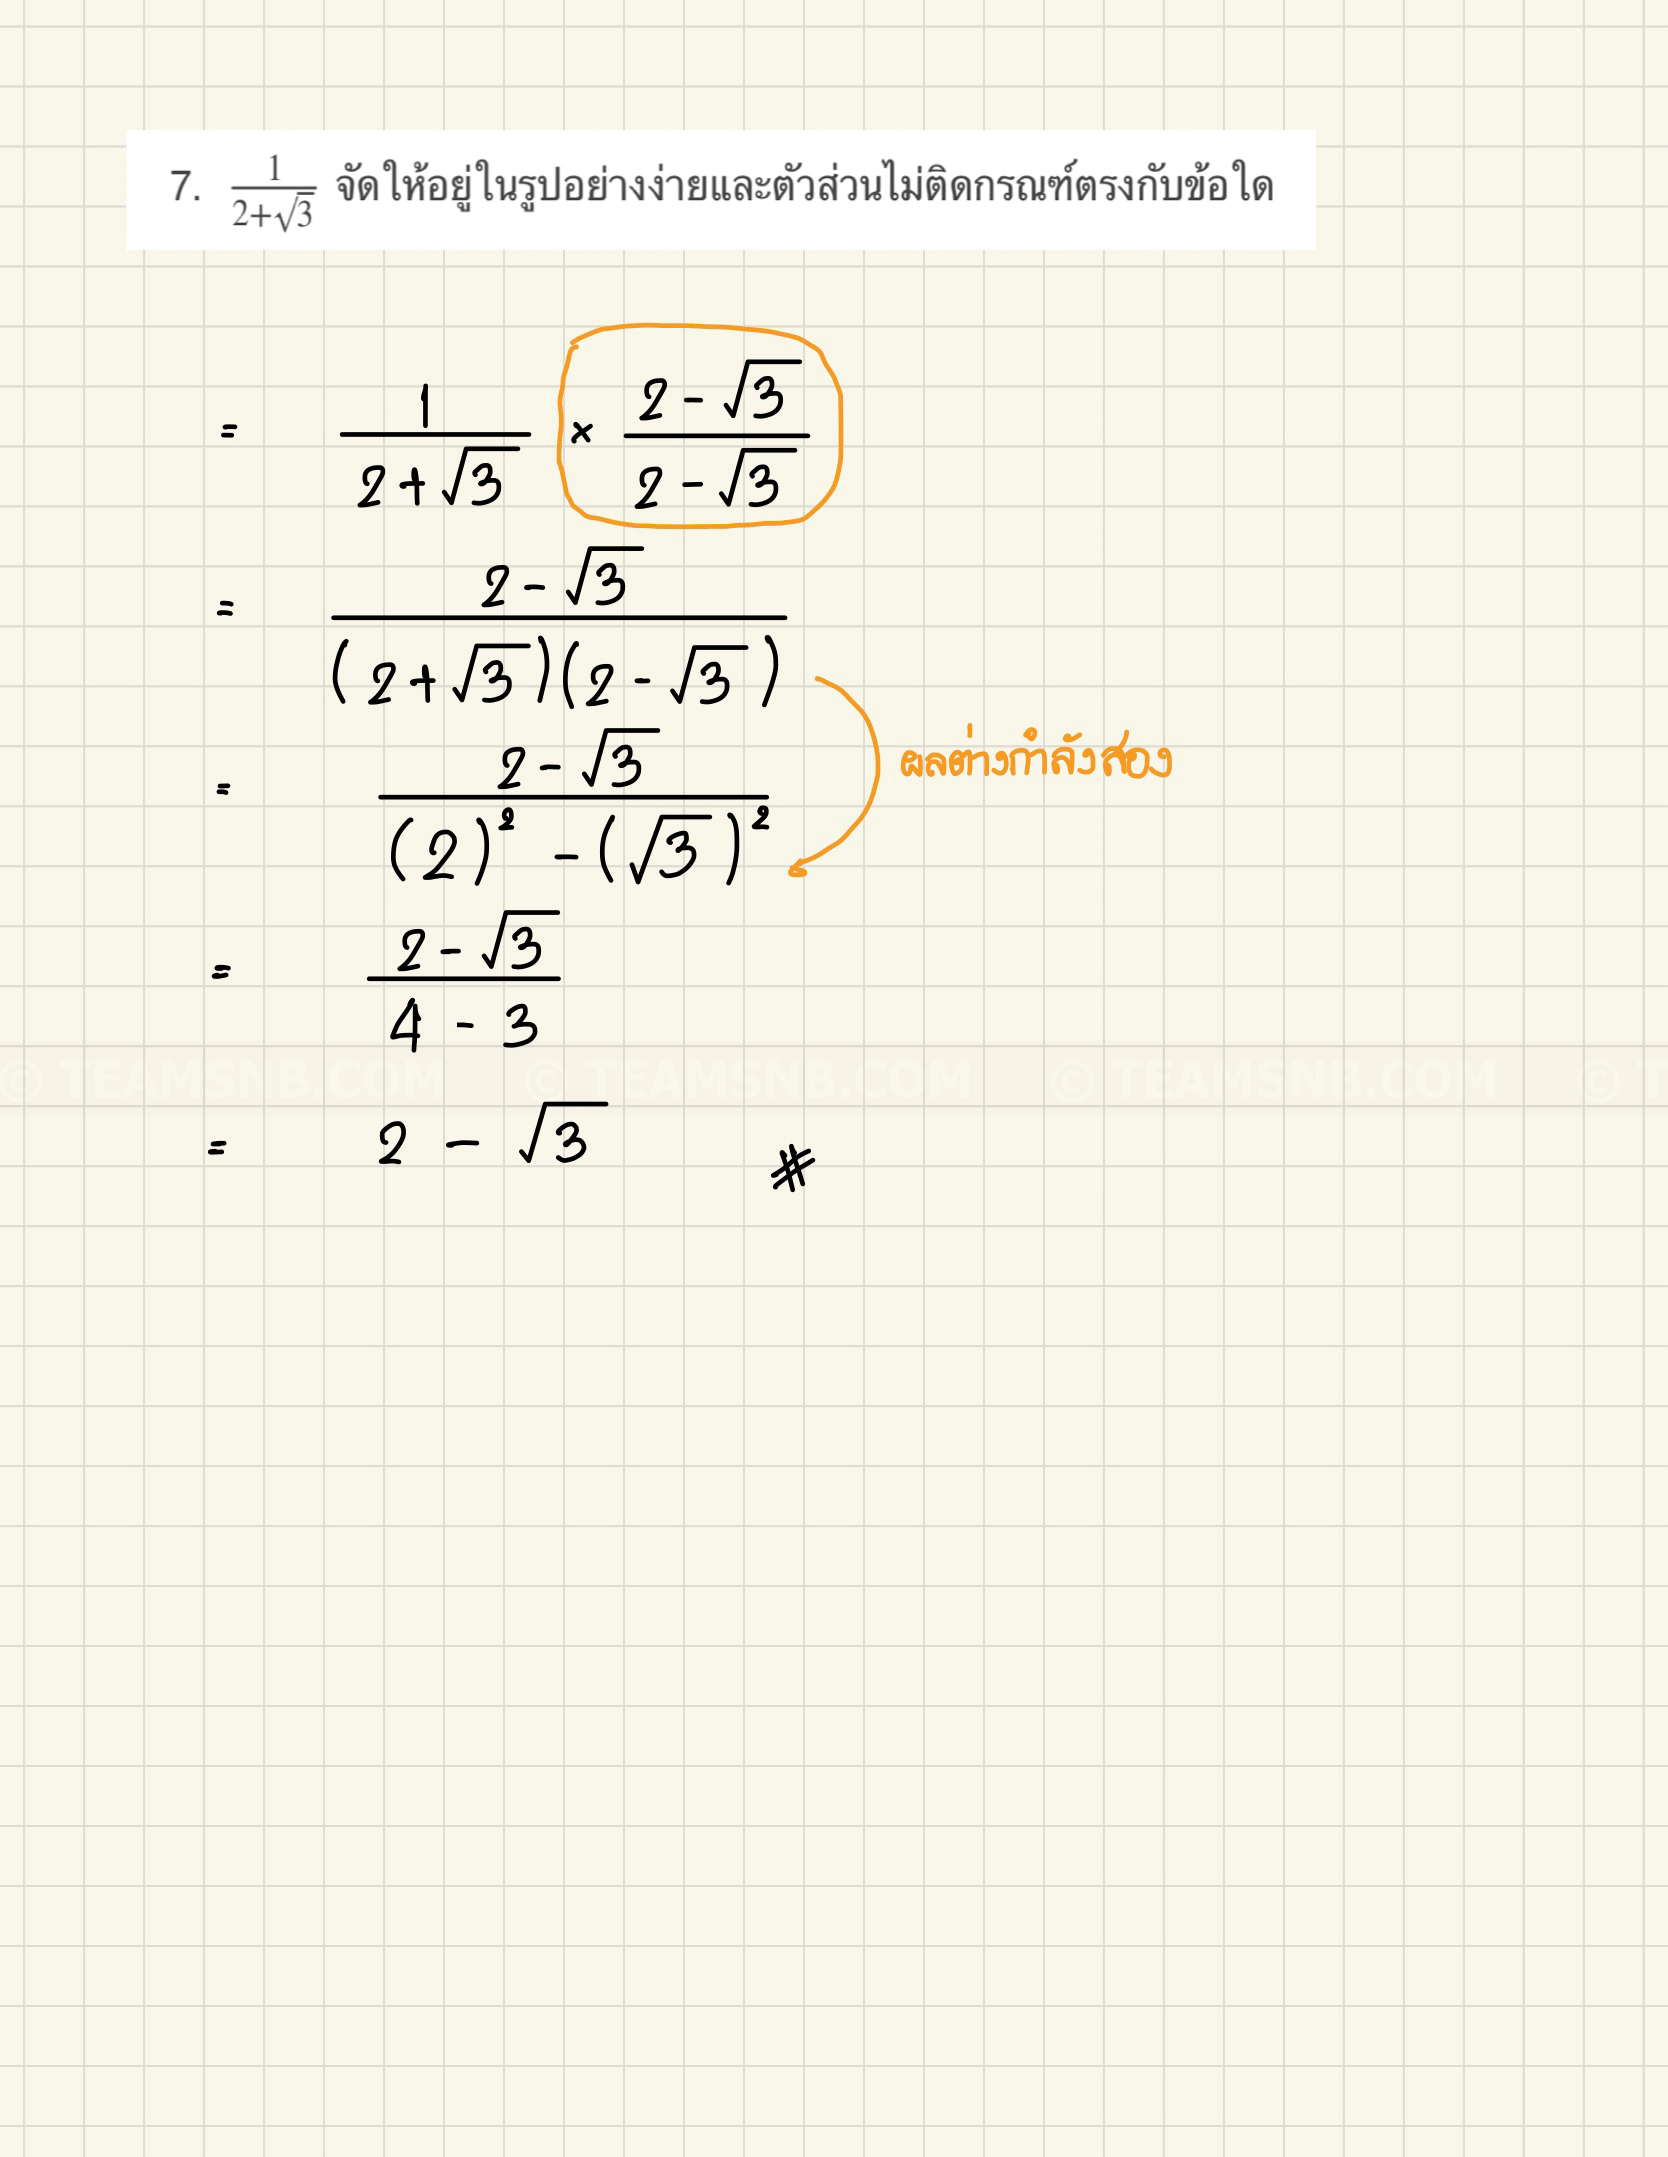 7. \frac{1}{2+\sqrt{3}} จัดให้อยู่ในรูปอย่างง่ายและตัวส่วนไม่ติดกรณฑ์ตรงกับข้อใด
= \frac{1}{2+\sqrt{3}} × \frac{2-\sqrt{3}}{2-\sqrt{3}}
= \frac{2-\sqrt{3}}{(2+\sqrt{3})(2-\sqrt{3})}
ผลต่างกำลังสอง
= \frac{2-\sqrt{3}}{(2)^2-(\sqrt{3})^2}
= \frac{2-\sqrt{3}}{4-3}
© TEAMSNB.COM © TEAMSNB.COM © TEAMSNB.COM © T
= 2 - \sqrt{3} #